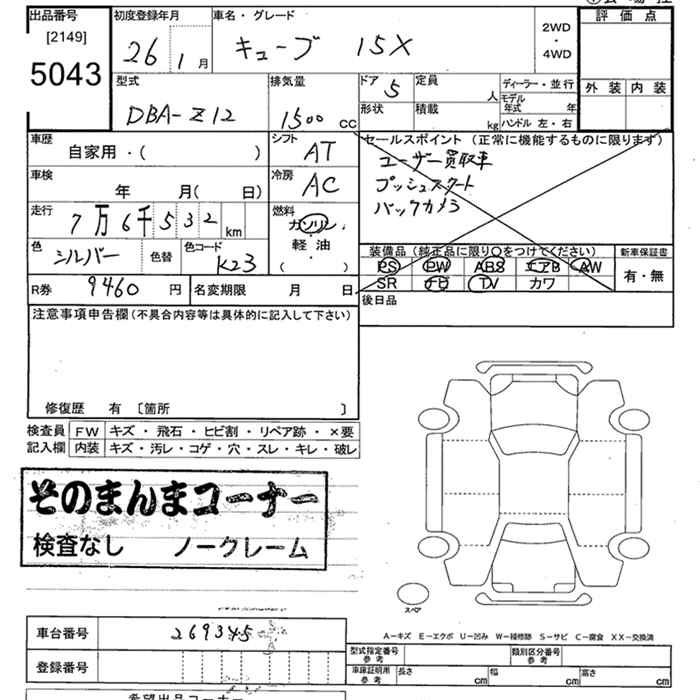 出品番号 初度登録年月 車名・グレード 評価点
[2149] 26 1月 キューブ 15X 2WD・4WD
5043
型式 排気量 ドア 5 定員 人 ディーラー・並行 外装 内装
DBA-Z12 1500 CC 形状 積載 kg モデル年式 年
ハンドル 左・右
車歴 シフト セールスポイント (正常に機能するものに限ります)
自家用・( ) AT ユーザー買取車
車検 冷房 プッシュスタート
年 月( 日) AC バックカメラ
走行 燃料
7万6千532km ガソリン
色 シルバー 色替 色コード 軽油・ 装備品 (純正品に限り○をつけてください) 新車保証書
K23 ( ) PS PW ABS エアB AW 有・無
R券 9460 円 名変期限 月 日 SR ナビ TV カワ
注意事項申告欄 (不具合内容等は具体的に記入して下さい) 後日品
修復歴 有 〔箇所 〕
検査員 FW キズ・飛石・ヒビ割・リペア跡・×要
記入欄 内装 キズ・汚レ・コゲ・穴・スレ・キレ・破レ
そのまんまコーナー
検査なし ノークレーム
スペア
A−キズ E−エクボ U−凹み W−補修跡 S−サビ C−腐食 XX−交換済
車台番号 269345 型式指定番号 参考 類別区分番号 参考
登録番号 車庫証明用 参考 長さ cm 幅 cm 高さ cm
希望出品コーナー